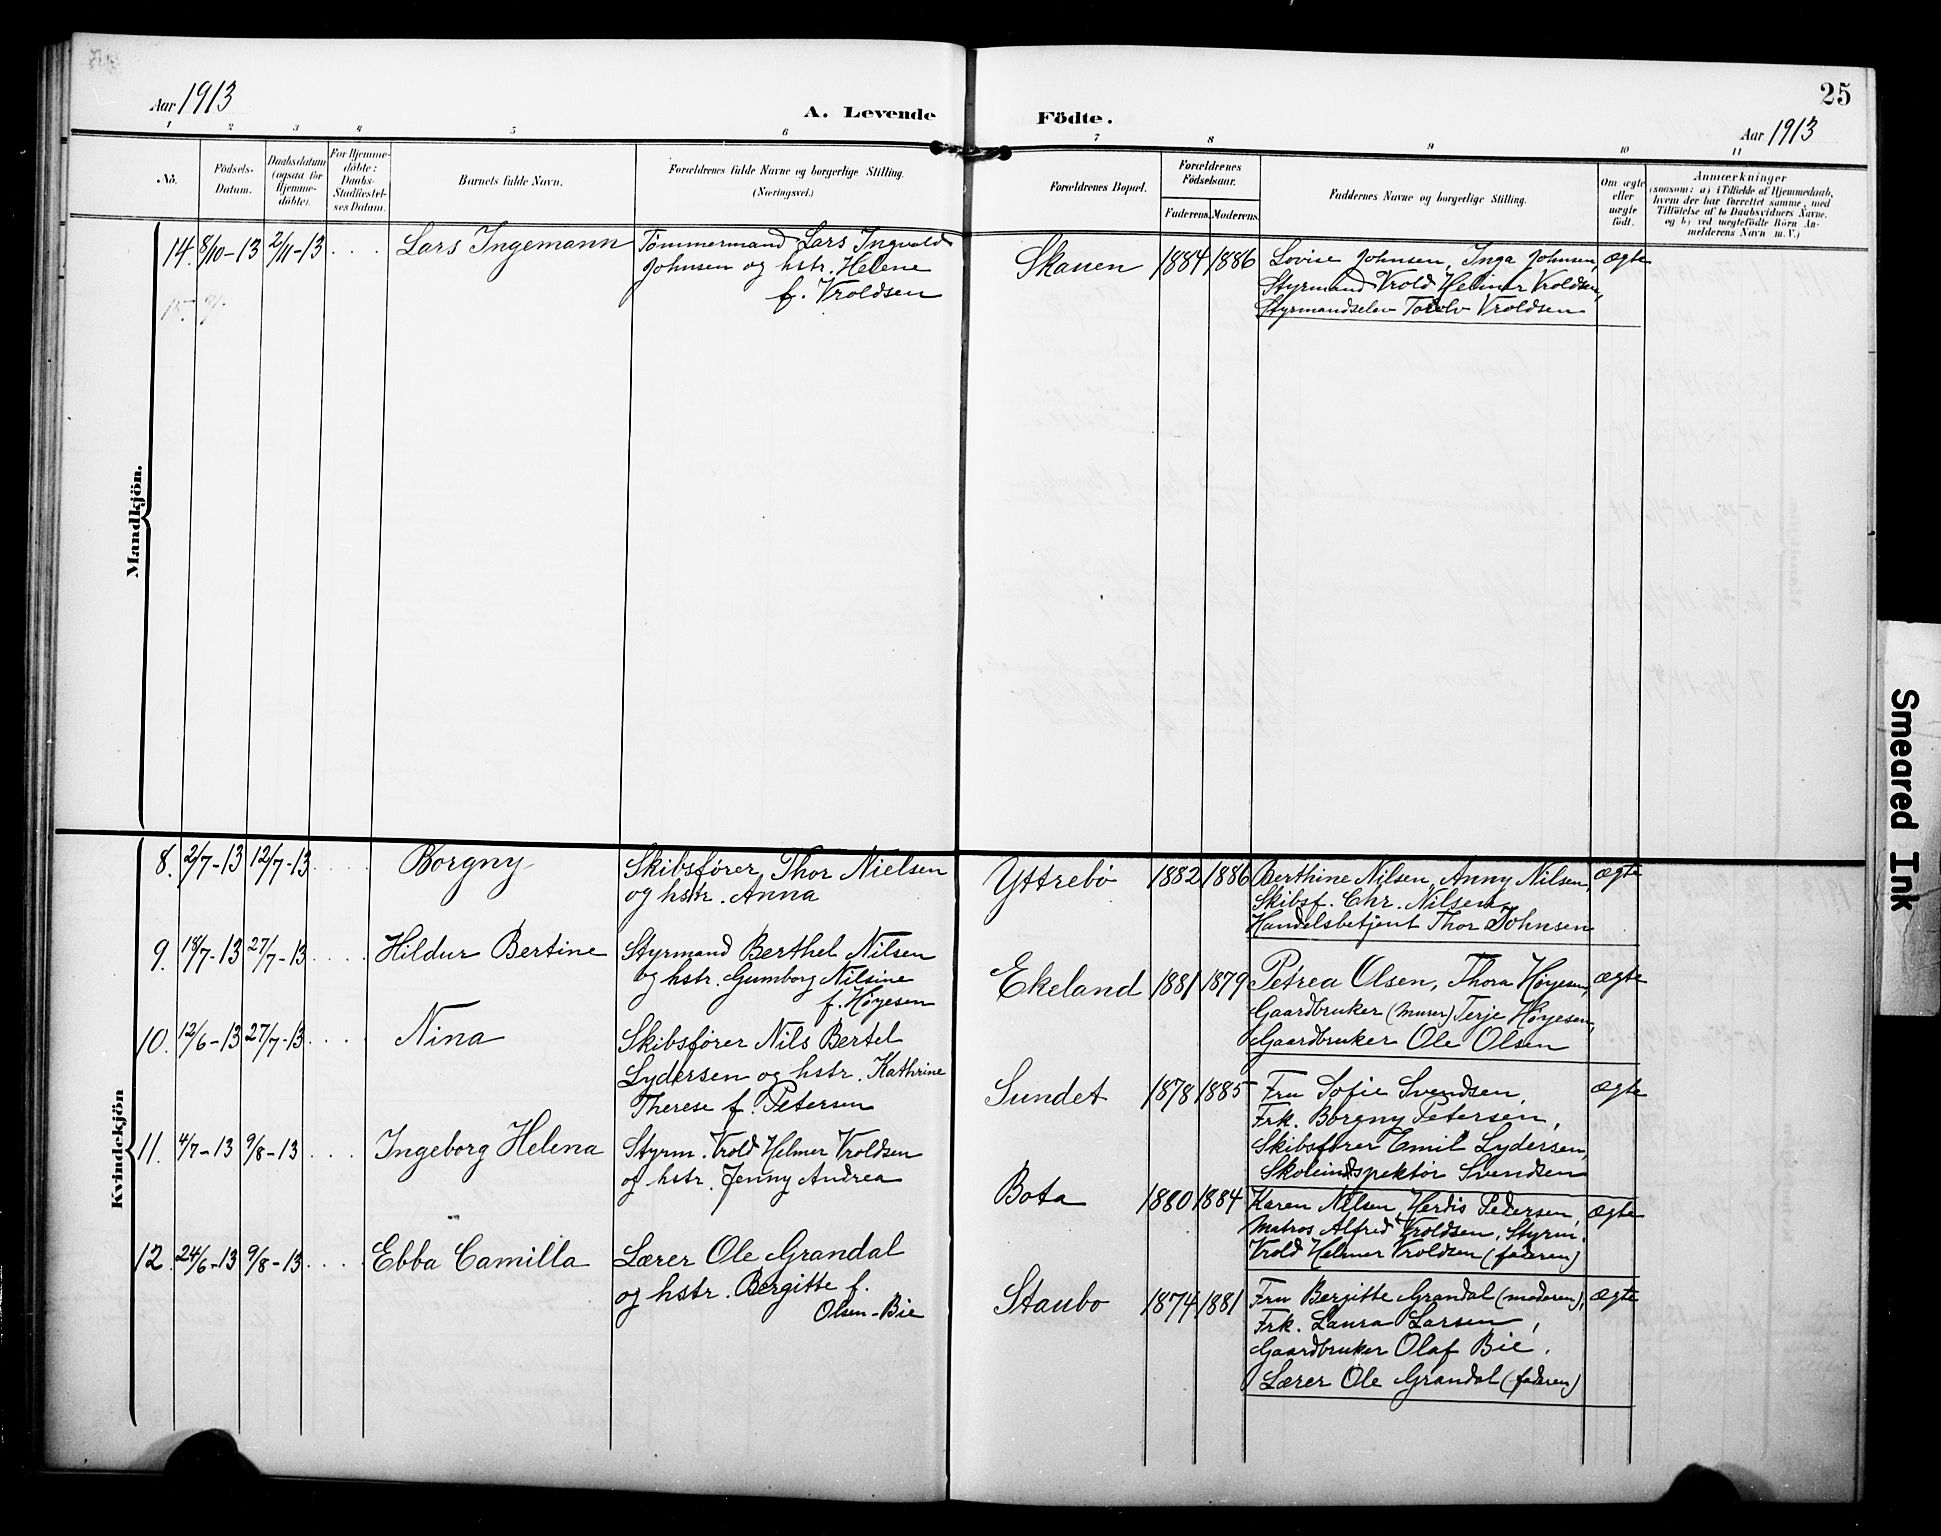 Aar 1913
A. Levende
1 2 3 4 5 6
No.
Födsels-
Datum.
Daabsdatum
(ogsaa for
Hjemme-
döbte).
For Hjemme-
döbte:
Daabs-
Stadfæstel-
ses Datum.
Barnets fulde Navn.
Forældrenes fulde Navne og borgerlige Stilling.
(Næringsvei.)
Mandkjön.
14. 8/10-13 2/11-13 . . . . Lars Ingemann Tömmermand Lars Ingvald
Johnsen og hstr. Helene
f. Vroldsen
15.
Kvindekjön
8. 2/7-13 12/7-13 . . . . Borgny Skibsfører Thor Nielsen
og hstr. Anna
9. 18/7-13 27/7-13 . . . . Hildur Bertine Styrmand Berthel Nilsen
og hstr. Gumborg Nilsine
f. Høyesen
10. 12/6-13 27/7-13 . . . . Nina Skibsfører Nils Bertel
Lydersen og hstr. Kathrine
Therese f. Petersen
11. 4/7-13 9/8-13 . . . . Ingeborg Helena Styrm. Vrold Helmer Vroldsen
og hstr. Jenny Andrea
12. 24/6-13 9/8-13 . . . . Ebba Camilla Lærer Ole Grandal
og hstr. Bergitte f.
Olsen-Bie
25
Födte.
Aar 1913
7 8 9 10 11
Forældrenes Bopæl.
Forældrenes
Födselsaar.
Faderens. Moderens.
Faddernes Navne og borgerlige Stilling.
Om ægte
eller
uægte
födt.
Anmærkninger
(saasom: a) i Tilfælde af Hjemmedaab,
hvem der har forrettet samme, med
Tilföielse af to Daabsvidners Navne.
og b) ved uægtefödte Börn An-
melderens Navn m. V.)
Skauen 1884 1886 Lovise Johnsen, Inga Johnsen, ægte
Styrmand Vrold Helmer Vroldsen,
Styrmandselev Torolv Vroldsen
Yttrebö 1882 1886 Berthine Nilsen, Anny Nilsen, ægte
Skibsf. Chr. Nilsen,
Handelsbetjent Thor Johnsen
Ekeland 1881 1879 Petrea Olsen, Thora Høyesen, ægte
Gaardbruker (murer) Terje Høyesen,
Gaardbruker Ole Olsen
Sundet 1878 1885 Fru Sofie Svendsen, ægte
Frk. Borgny Petersen,
Skibsfører Emil Lydersen,
Skoleindspektör Svendsen
Bota 1880 1884 Karen Nilsen, Herdis Pedersen, ægte
Matros Alfred Vroldsen, Styrm.
Vrold Helmer Vroldsen (faderen)
Staubo 1874 1881 Fru Bergitte Grandal (moderen), ægte
Frk. Laura Larsen,
Gaardbruker Olaf Bie,
Lærer Ole Grandal (faderen)
Smeared Ink